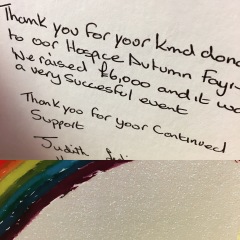 Thank you for your kind dona
to our Hospice Autumn Fayr
We raised £6,000 and it wa
a very Succesful event
Thank you for your Continued
Support
Judith &